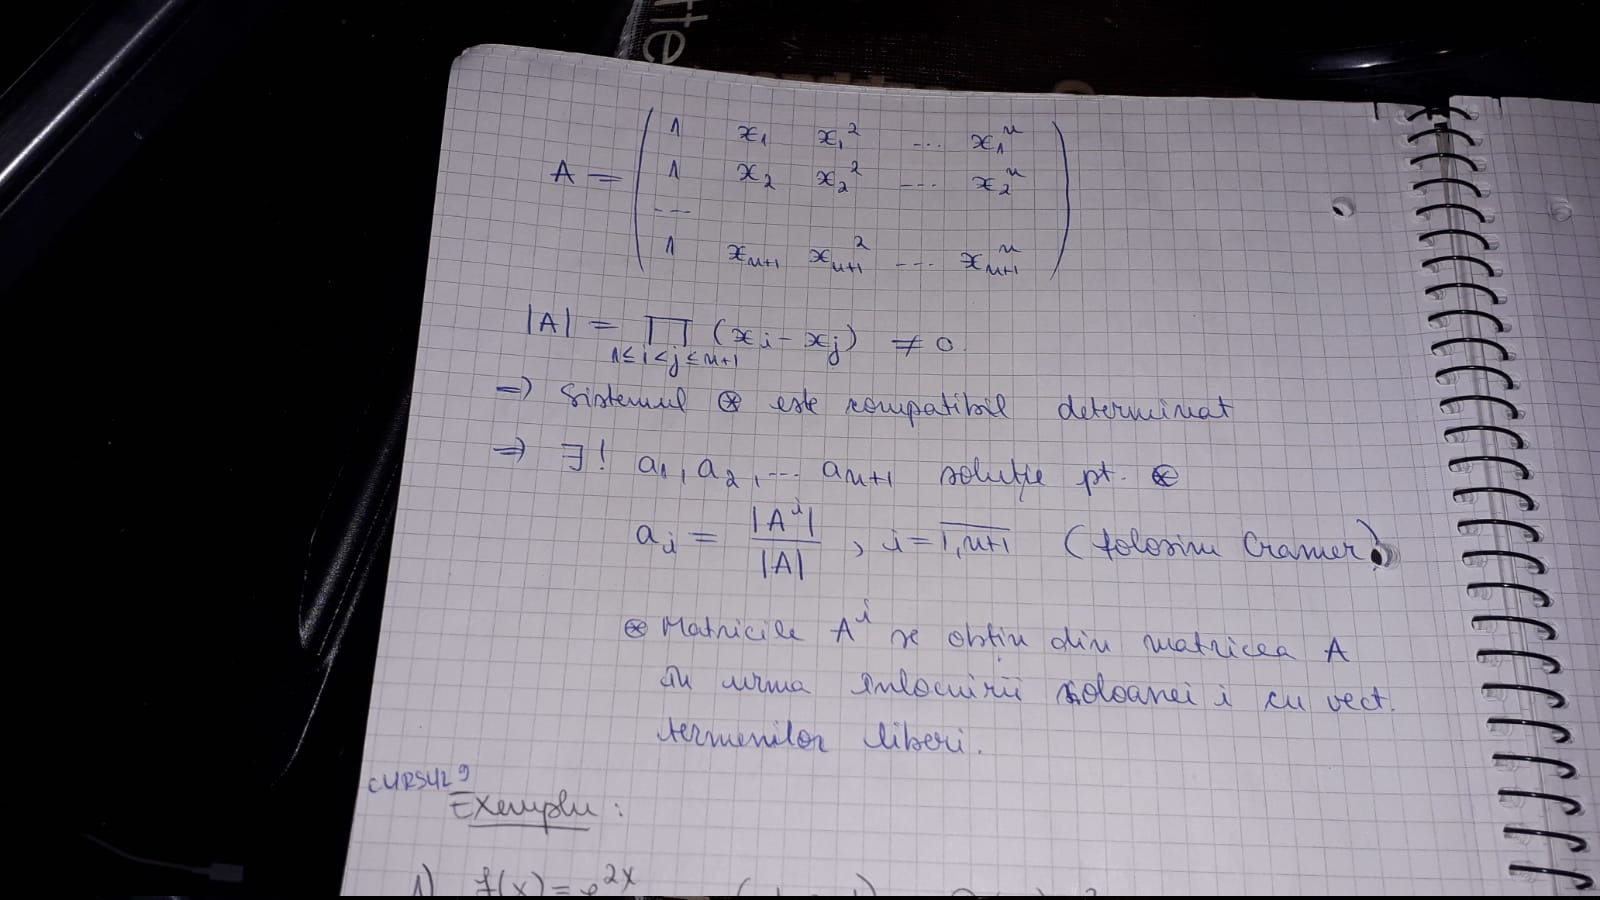 tte
A = ( 1 x₁ x₁² ... x₁ⁿ
1 x₂ x₂² ... x₂ⁿ
...
1 xₙ₊₁ xₙ₊₁² ... xₙ₊₁ⁿ )
|A| = ∏ (xi - xj) ≠ 0.
1≤i<j≤n+1
=> Sistemul ⊛ este compatibil determinat
=> ∃! a₁, a₂, ... aₙ₊₁ soluție pt. ⊛
ai = |Aⁱ| / |A| , i = 1,n+1 (folosim Cramer)
⊛ Matricile Aⁱ se obțin din matricea A
în urma înlocuirii coloanei i cu vect.
termenilor liberi.
CURSUL 9
Exemplu:
1) f(x) = e²ˣ